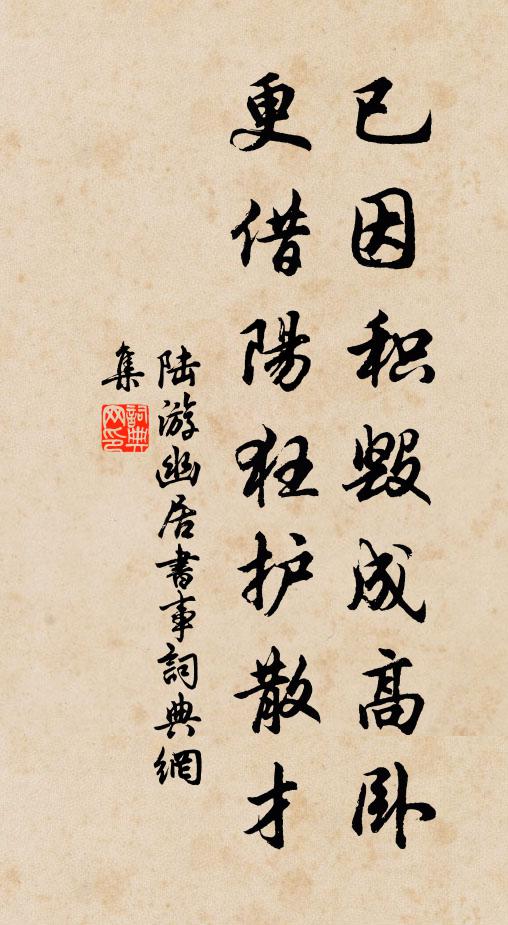 已因积毁成高卧
更借陽狂护散才
陆游幽居書事詞典網
集
詞典网印